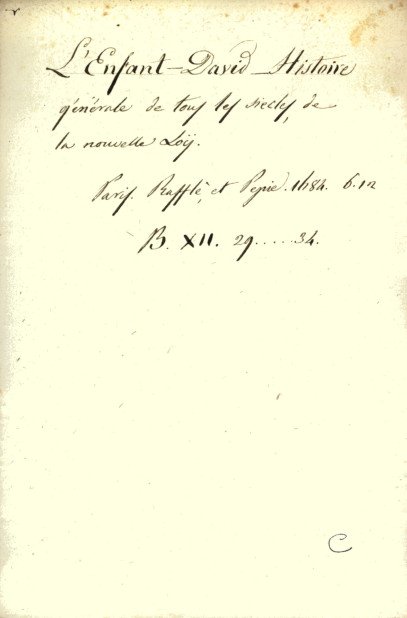 L'Enfant-David-Histoire
générale de tous les siecles, de
la nouvelle Loÿ.
Paris. Rafflé, et Pepie. 1684. 6.12
B. XII. 29.....34.
C